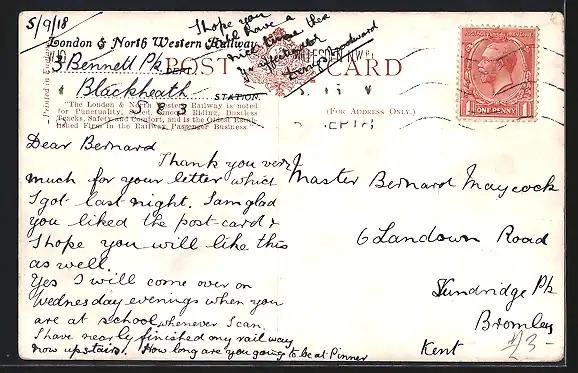 5/9/18
London & North Western Railway
3 Bennett Pk
DEPT.
Blackheath
STATION.
S E 3
"The London & North Western Railway is noted
for Punctuality, Speed, Smooth Riding, Dustless
Tracks, Safety and Comfort, and is the Oldest Estab-
lished Firm in the Railway Passenger Business."
Printed in England
POST CARD
(FOR ADDRESS ONLY.)
I hope you
will have a
nice time
ONE PENNY
Dear Bernard
Thank you very
much for your letter which
I got last night. I am glad
you liked the post-card &
I hope you will like this
as well.
Yes I will come over on
Wednesday evenings when you
are at school whenever I can.
I have nearly finished my railway
now upstairs. How long are you going to be at Pinner
Master Bernard Maycock
6 Landown Road
Sundridge Pk
Bromley
Kent
£3-